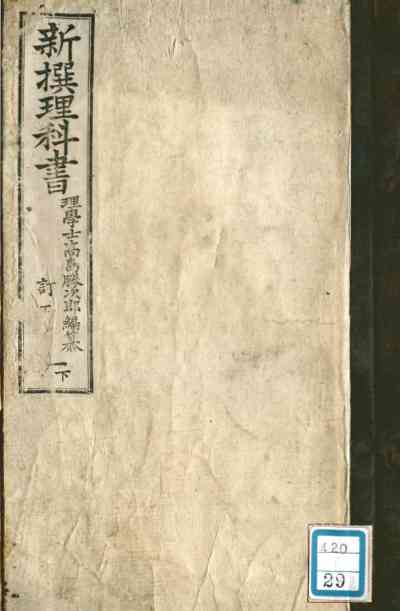 新撰理科書
理學士高島勝次郎編纂
訂
一下
420
29